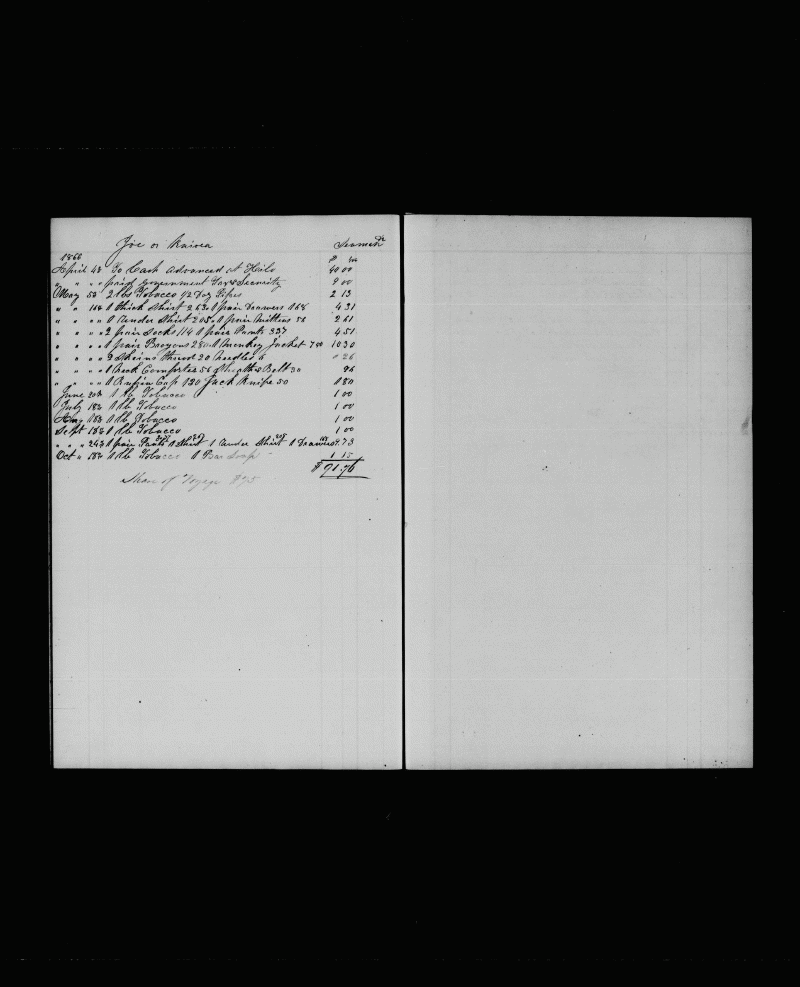 Joe or Kaiwea Seaman Dr
1866 $ cts
April 4th To Cash Advanced at Hilo 40 00
" " " " paid Government Tax & Security 9 00
May 5th 2 lbs Tobacco 1/2 Doz Pipes 2 13
" " 16th 1 Thick Shirt 263 1 pair Drawers 168 4 31
" " " " 1 Under Shirt 205 1 pair Mittens 56 2 61
" " " " 2 pair Socks 114 1 pair Pants 337 4 51
" " " " 1 pair Brogans 280 1 Monkey Jacket 750 10 30
" " " " 2 Skeins Thread 20 Needles 6 0 26
" " " " 1 Neck Comforter 56 Sheath & Belt 30 96
" " " " 1 Russia Cap 130 Jack Knife 50 1 80
June 20th 1 lb Tobacco 1 00
July 18th 1 lb Tobacco 1 00
Aug 18th 1 lb Tobacco 1 00
Sept 18th 1 lb Tobacco 1 00
" " " 24th 1 pair Pants 1 Shirt 1 Under Shirt 1 Drawers 9.73
Oct " 18th 1 lb Tobacco 1 Bar Soap 1 15
$ 91.76
Share of Voyage $95